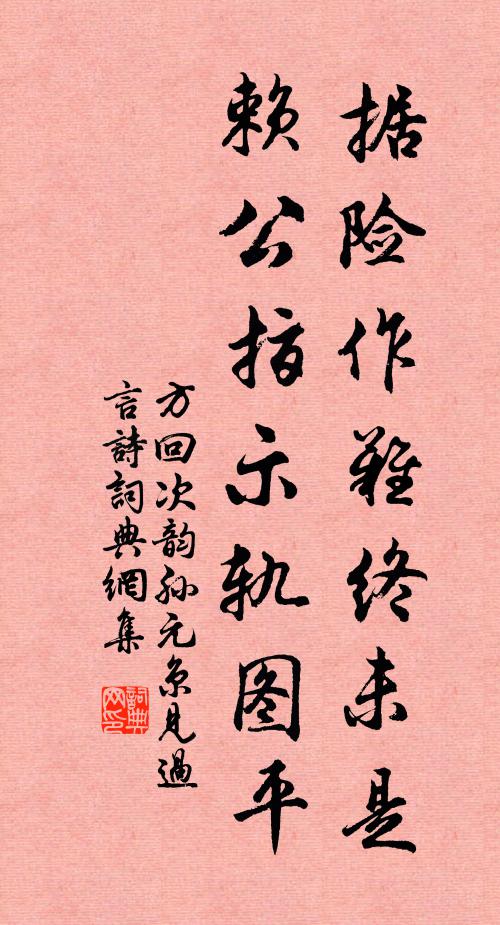 据险作难终未是
赖公指示轨图平
方回次韵孙元京见过
言詩詞典網集
詞典网印